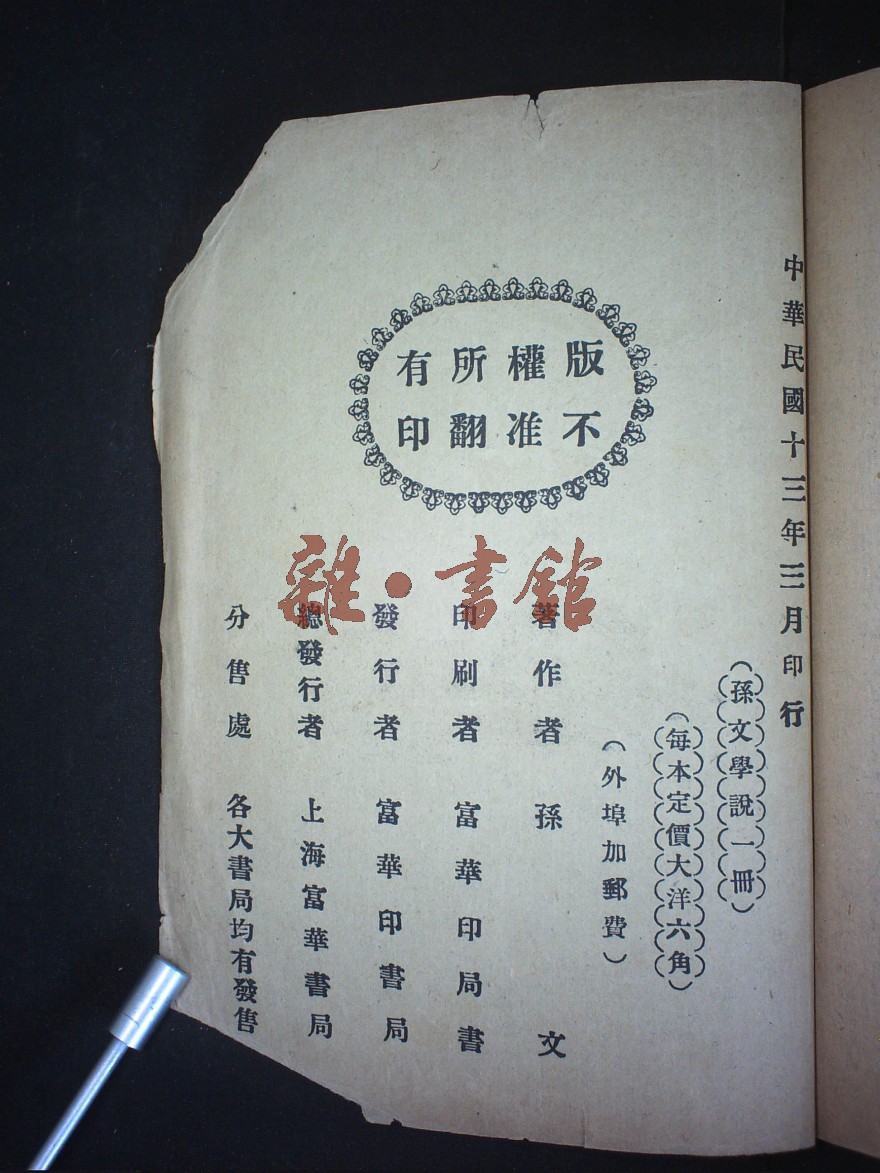 中華民國十三年三月印行
(孫文學說一冊)
(每本定價大洋六角)
(外埠加郵費)
版權所有
不准翻印
著作者 孫文
印刷者 富華印局書
發行者 富華印書局
總發行者 上海富華書局
分售處 各大書局均有發售
雜·書館